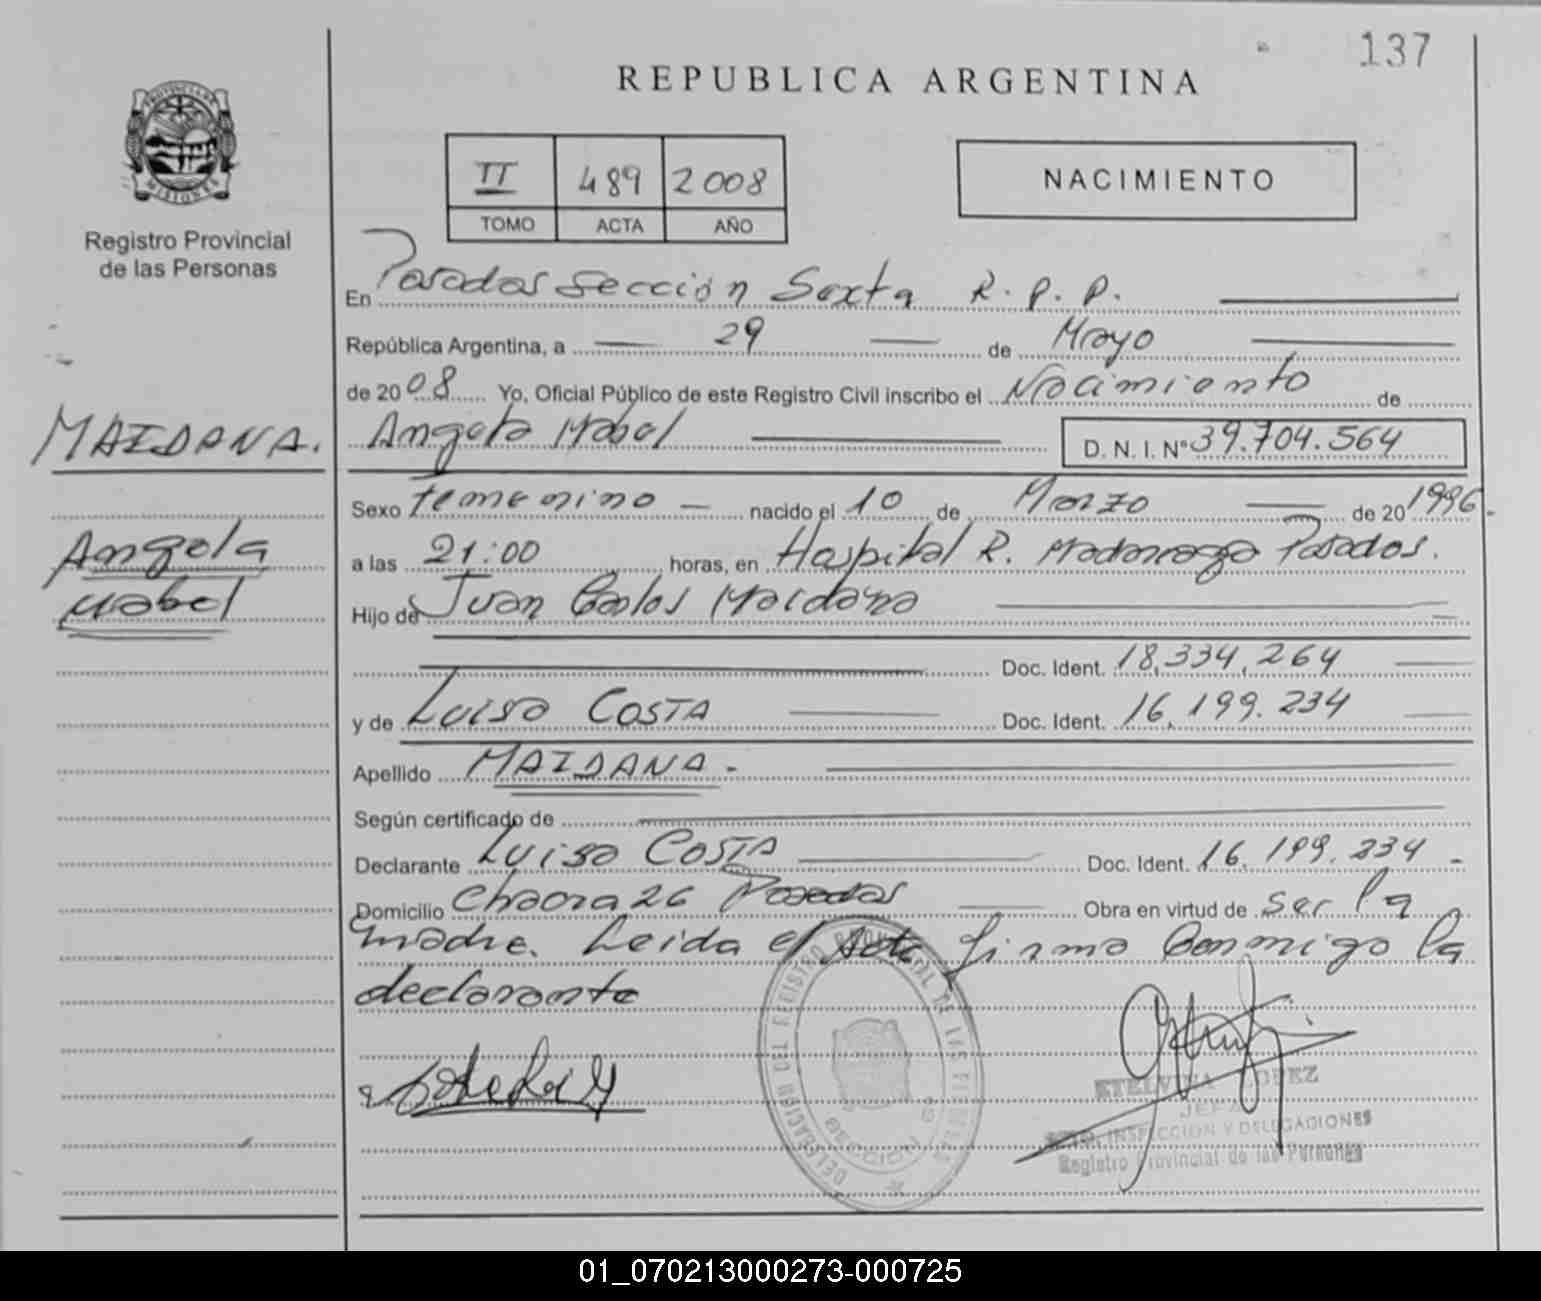 137
REPUBLICA ARGENTINA
PROVINCIA DE
MISIONES
Registro Provincial
de las Personas
II 489 2008
TOMO ACTA AÑO
NACIMIENTO
En Posadas Sección Sexta R. P. P.
República Argentina, a 29 de Mayo
de 2008 Yo, Oficial Público de este Registro Civil inscribo el Nacimiento de
MAIDANA. Angela Mabel D. N. I. Nº 39.704.564
Sexo femenino - nacido el 10 de Marzo de 20 1996.
Angela
Mabel
a las 21:00 horas, en Hospital R. Madariaga Posadas.
Hijo de Juan Carlos Maidana
Doc. Ident. 18,334,264
y de Luisa COSTA Doc. Ident. 16,199.234
Apellido MAIDANA.-
Según certificado de
Declarante Luisa COSTA Doc. Ident. 16.199.234 -
Domicilio Chacra 26 Posadas Obra en virtud de ser la
madre. Leida el Acta firma conmigo la
declarante
DELEGACION DEL REGISTRO PROVINCIAL DE LAS PERSONAS
ETELVINA LOPEZ
JEFA
INSPECCION Y DELEGACIONES
Registro Provincial de las Personas
01_070213000273-000725